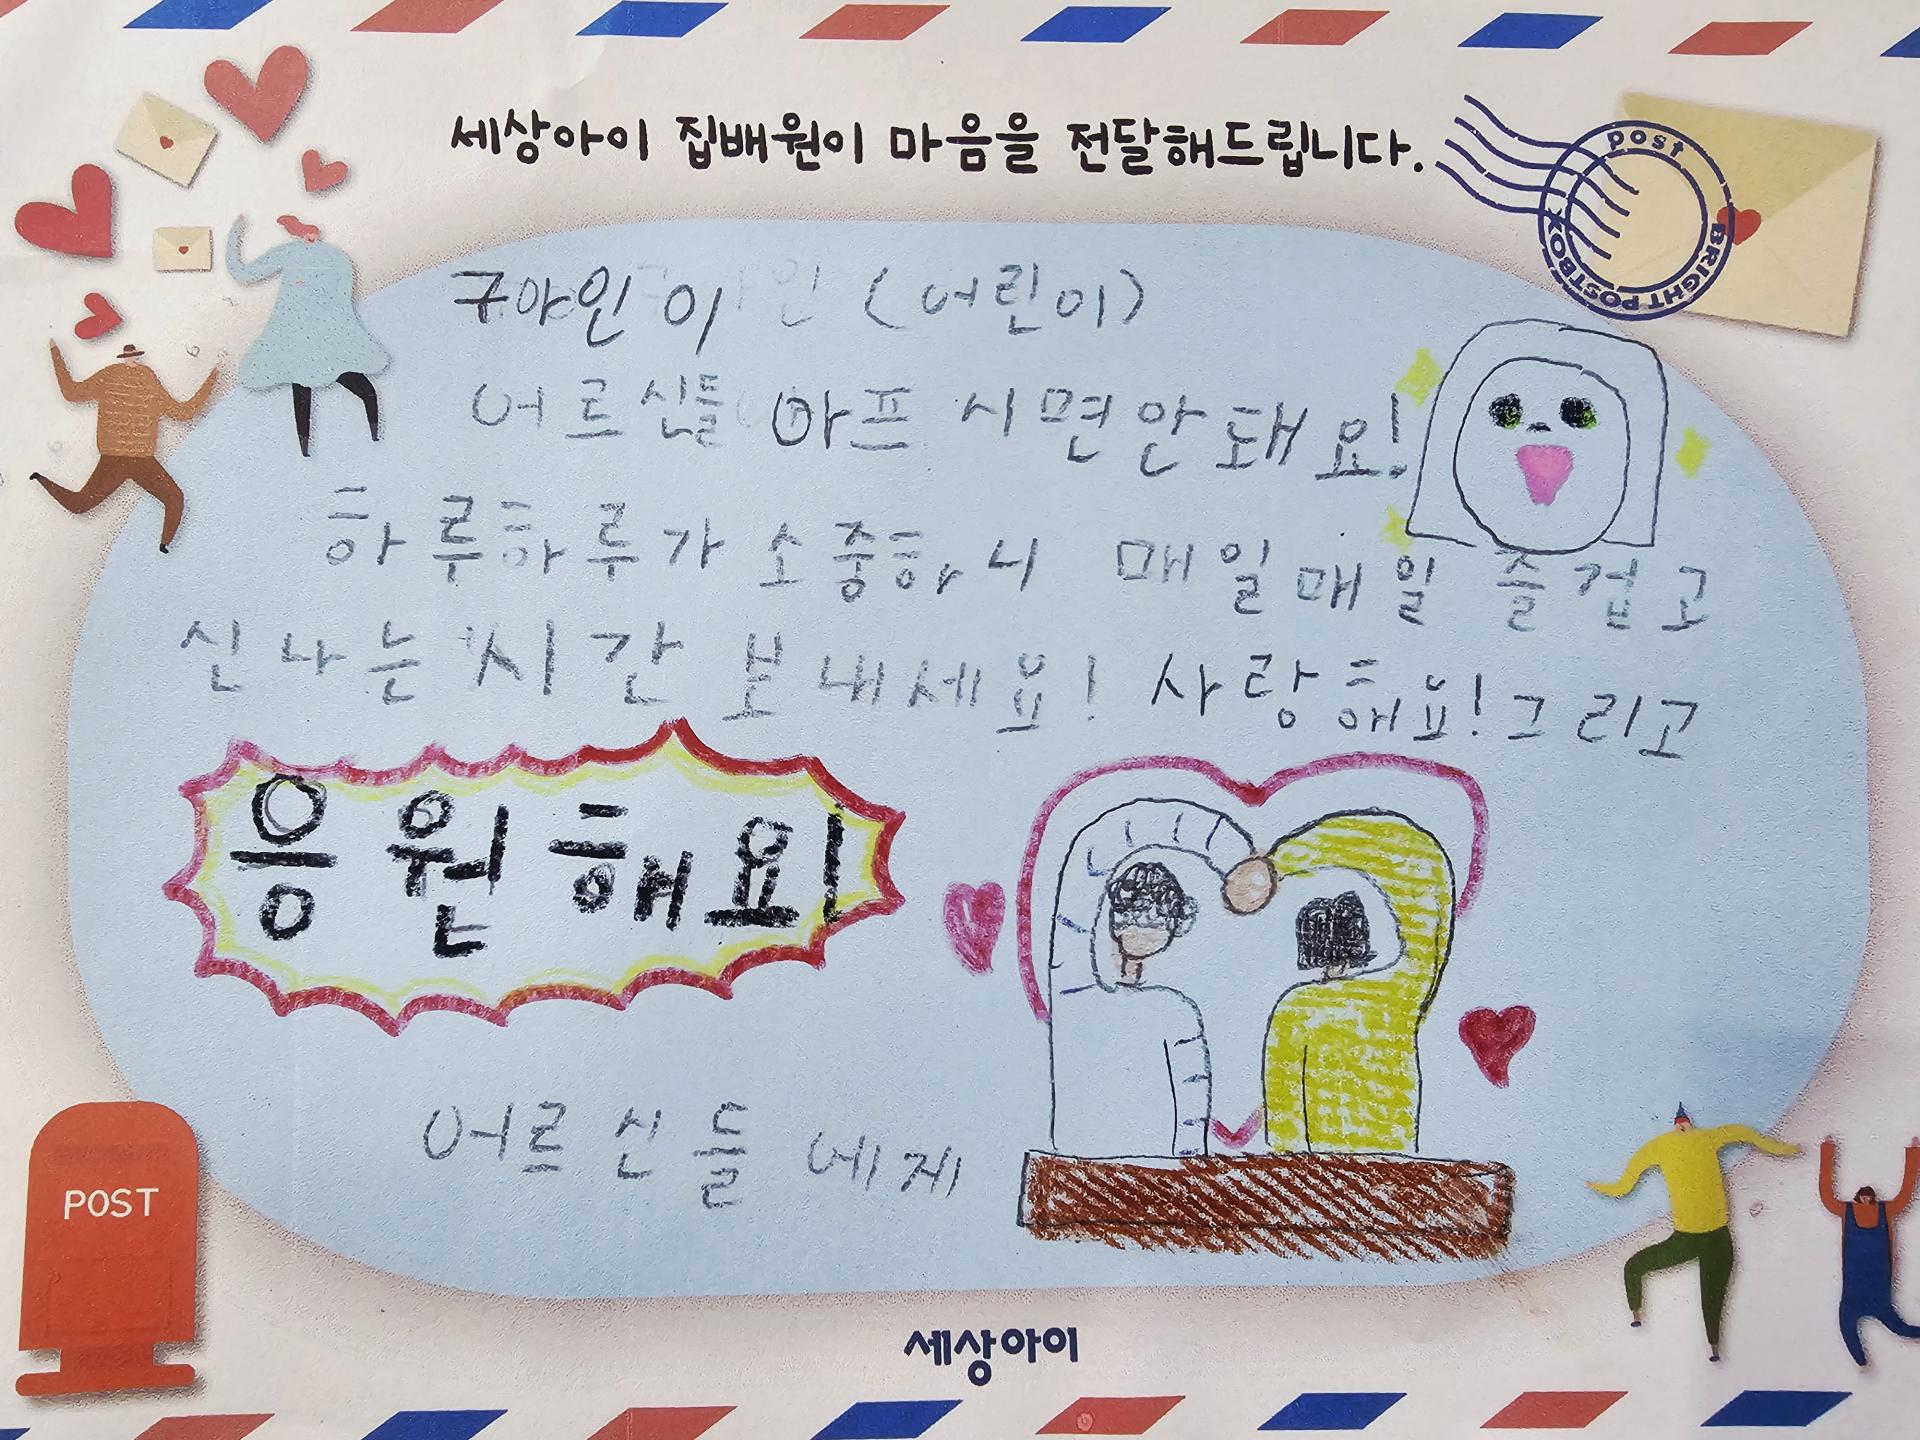 세상아이 집배원이 마음을 전달해드립니다.
post
BRIGHT POSTBOX
구아인이 (어린이)
어르신들 아프시면안돼요!
하루하루가 소중하니 매일매일 즐겁고
신나는 시간 보내세요! 사랑해요! 그리고
응원해요!
어르신들에게
POST
세상아이